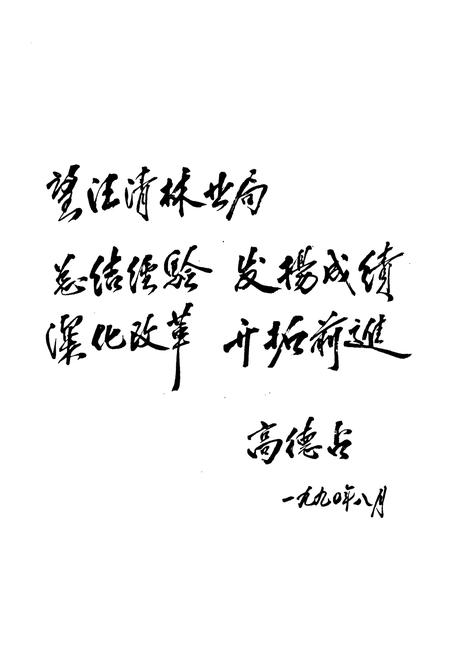 望汪清林业局
总结经验 发揚成绩
深化改革 开拓前進
高德占
一九九〇年八月